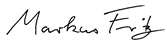 Markus Fritz